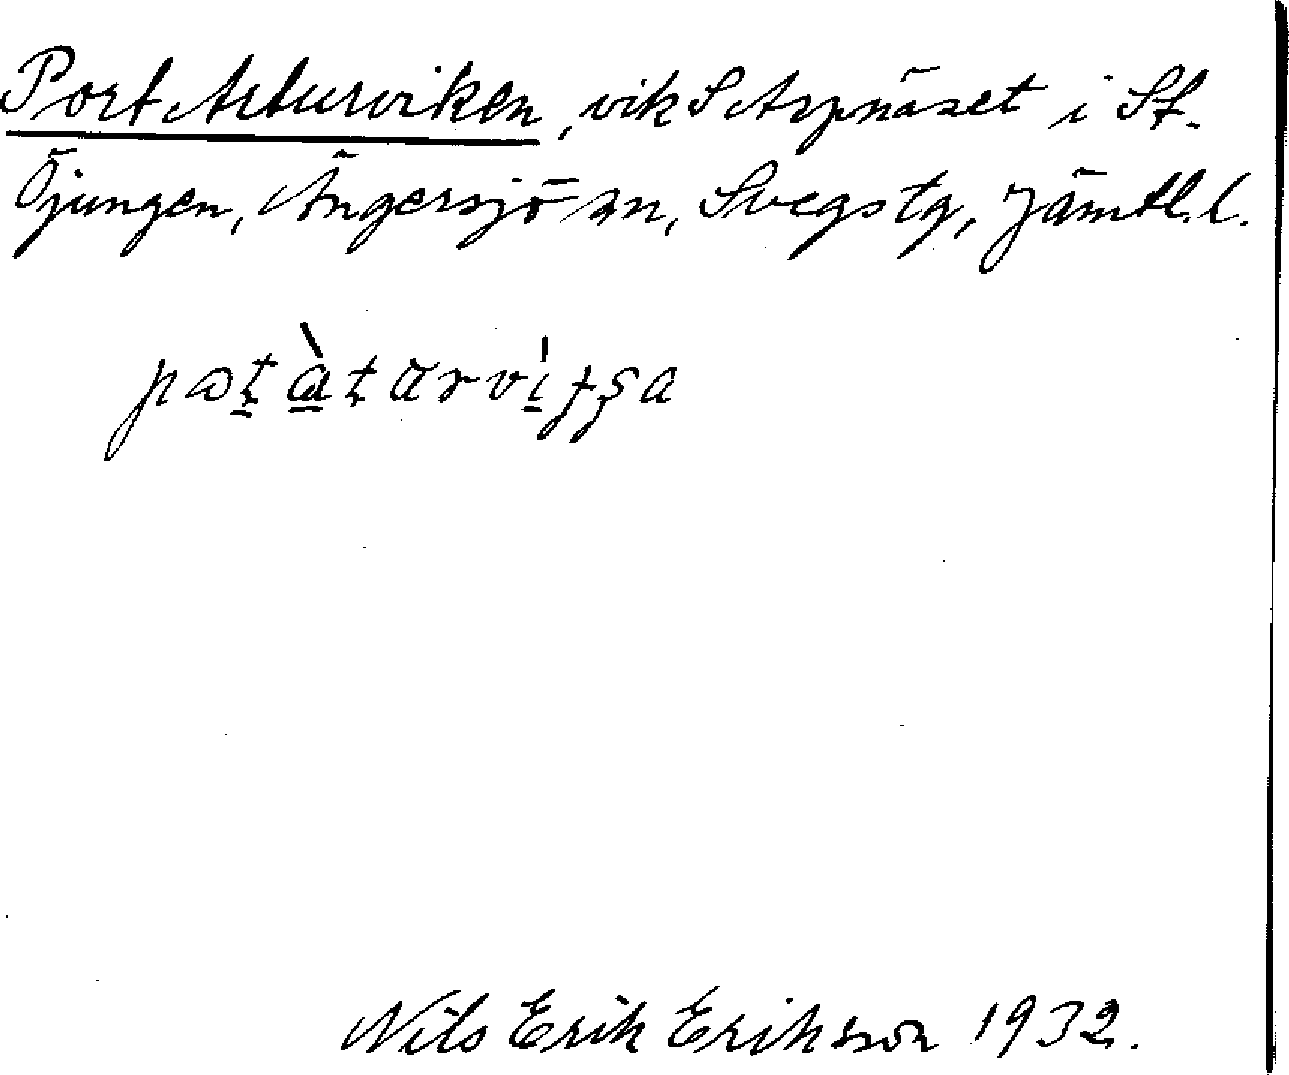 Port Arturviken, vik S Arpnäset i St.
Öjungen, Ängersjö sn, Svegs tg, Jämtl. l.
Nils Erik Eriksson 1932.